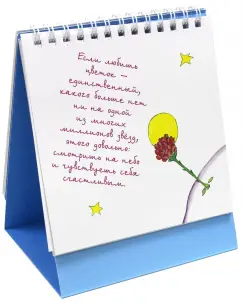 Если любить
цветок –
единственный,
какого больше нет
ни на одной
из многих
миллионов звёзд,
этого довольно:
смотришь на небо
и чувствуешь себя
счастливым.